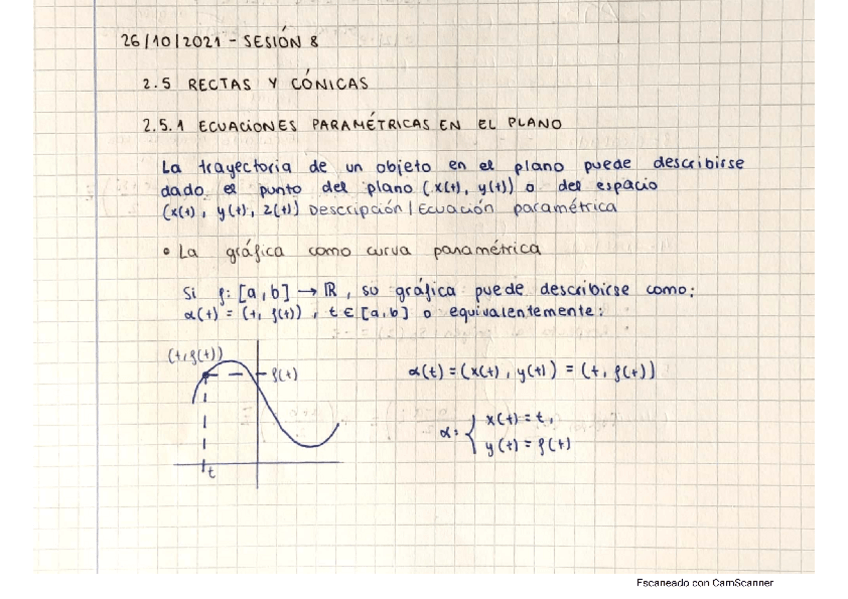 26/10/2021 - SESIÓN 8
2.5 RECTAS Y CÓNICAS
2.5.1 ECUACIONES PARAMÉTRICAS EN EL PLANO
La trayectoria de un objeto en el plano puede describirse
dado el punto del plano (x(t), y(t)) o del espacio
(x(t), y(t), z(t)) Descripción/Ecuación paramétrica
• La gráfica como curva paramétrica
Si f: [a,b] → ℝ, su gráfica puede describirse como:
α(t) = (t, f(t)), t ∈ [a,b] o equivalentemente:
(t, f(t))
f(t)
t
α(t) = (x(t), y(t)) = (t, f(t))
α: { x(t) = t,
y(t) = f(t)
Escaneado con CamScanner